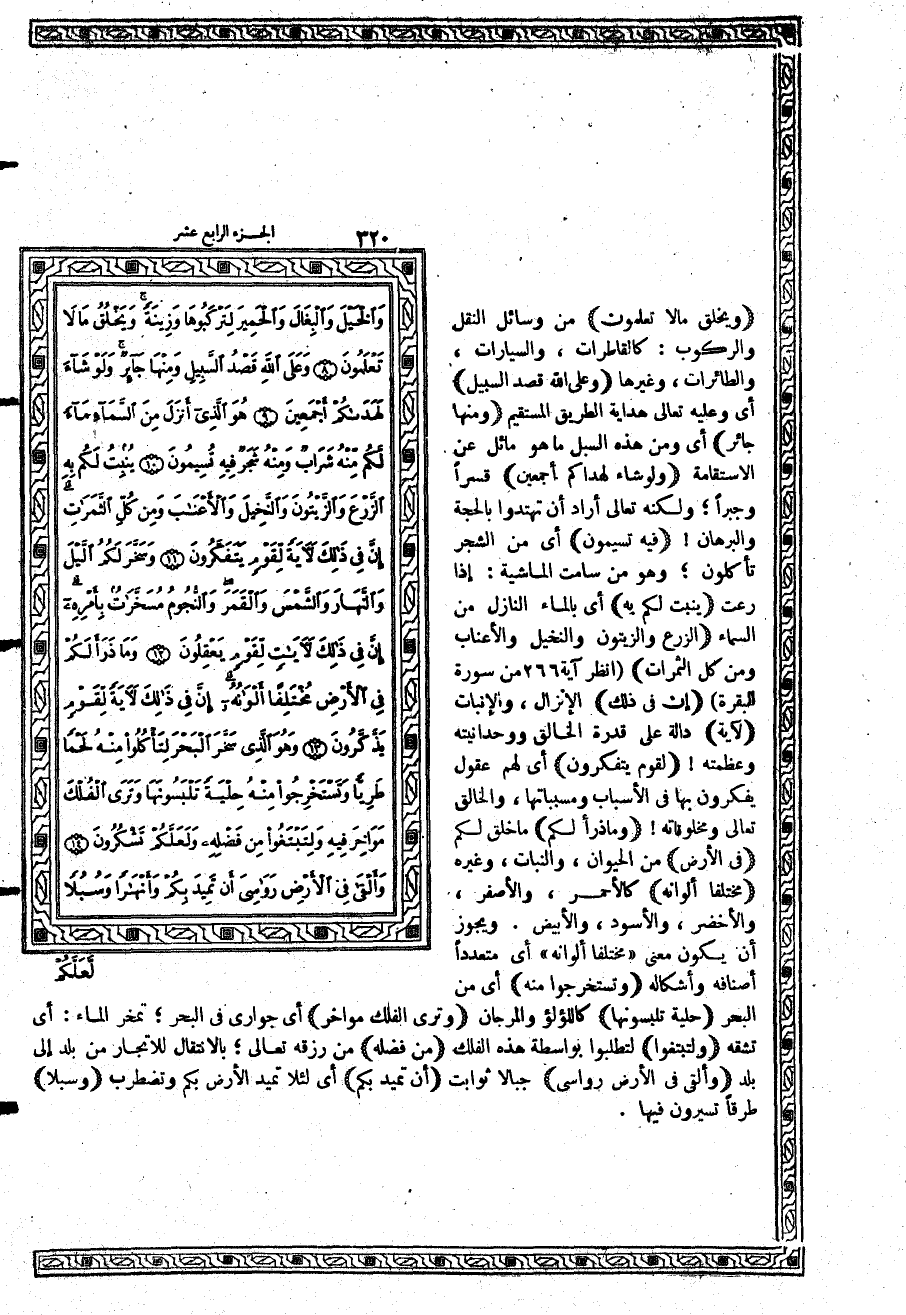 ٣٢٠ الجـــزء الرابع عشر
وَٱلْخَيْلَ وَٱلْبِغَالَ وَٱلْحَمِيرَ لِتَرْكَبُوهَا وَزِينَةً ۚ وَيَخْلُقُ مَا لَا
تَعْلَمُونَ ﴿٨﴾ وَعَلَى ٱللَّهِ قَصْدُ ٱلسَّبِيلِ وَمِنْهَا جَآئِرٌ ۚ وَلَوْ شَآءَ
لَهَدَىٰكُمْ أَجْمَعِينَ ﴿٩﴾ هُوَ ٱلَّذِىٓ أَنزَلَ مِنَ ٱلسَّمَآءِ مَآءً
لَّكُم مِّنْهُ شَرَابٌ وَمِنْهُ شَجَرٌ فِيهِ تُسِيمُونَ ﴿١٠﴾ يُنۢبِتُ لَكُم بِهِ
ٱلزَّرْعَ وَٱلزَّيْتُونَ وَٱلنَّخِيلَ وَٱلْأَعْنَـٰبَ وَمِن كُلِّ ٱلثَّمَرَٰتِ ۗ
إِنَّ فِى ذَٰلِكَ لَـَٔايَةً لِّقَوْمٍ يَتَفَكَّرُونَ ﴿١١﴾ وَسَخَّرَ لَكُمُ ٱلَّيْلَ
وَٱلنَّهَارَ وَٱلشَّمْسَ وَٱلْقَمَرَ ۖ وَٱلنُّجُومُ مُسَخَّرَٰتٌۢ بِأَمْرِهِۦٓ ۗ
إِنَّ فِى ذَٰلِكَ لَـَٔايَـٰتٍ لِّقَوْمٍ يَعْقِلُونَ ﴿١٢﴾ وَمَا ذَرَأَ لَكُمْ
فِى ٱلْأَرْضِ مُخْتَلِفًا أَلْوَٰنُهُۥٓ ۗ إِنَّ فِى ذَٰلِكَ لَـَٔايَةً لِّقَوْمٍ
يَذَّكَّرُونَ ﴿١٣﴾ وَهُوَ ٱلَّذِى سَخَّرَ ٱلْبَحْرَ لِتَأْكُلُوا۟ مِنْهُ لَحْمًا
طَرِيًّا وَتَسْتَخْرِجُوا۟ مِنْهُ حِلْيَةً تَلْبَسُونَهَا وَتَرَى ٱلْفُلْكَ
مَوَاخِرَ فِيهِ وَلِتَبْتَغُوا۟ مِن فَضْلِهِۦ وَلَعَلَّكُمْ تَشْكُرُونَ ﴿١٤﴾
وَأَلْقَىٰ فِى ٱلْأَرْضِ رَوَٰسِىَ أَن تَمِيدَ بِكُمْ وَأَنْهَـٰرًا وَسُبُلًا
لَّعَلَّكُمْ
(ويخلق مالا تعلمون) من وسائل النقل
والركوب : كالقاطرات ، والسيارات ،
والطائرات ، وغيرها (وعلى الله قصد السبيل)
أى وعليه تعالى هداية الطريق المستقيم (ومنها
جائر) أى ومن هذه السبل ما هو مائل عن
الاستقامة (ولو شاء لهداكم أجمعين) قسراً
وجبراً ؛ ولكنه تعالى أراد أن تهتدوا بالحجة
والبرهان ! (فيه تسيمون) أى من الشجر
تأكلون ؛ وهو من سامت الماشية : إذا
رعت (ينبت لكم به) أى بالماء النازل من
السماء (الزرع والزيتون والنخيل والأعناب
ومن كل الثمرات) (انظر آية ٢٦٦ من سورة
البقرة) (إن فى ذلك) الإنزال ، والإنبات
(لآية) دالة على قدرة الخالق ووحدانيته
وعظمته ! (لقوم يتفكرون) أى لهم عقول
يفكرون بها فى الأسباب ومسبباتها ، والخالق
تعالى ومخلوقاته ! (وماذرأ لكم) ماخلق لكم
(فى الأرض) من الحيوان ، والنبات ، وغيره
(مختلفا ألوانه) كالأحمـــر ، والأصفر ،
والأخضر ، والأسود ، والأبيض . ويجوز
أن يكون معنى «مختلفا ألوانه» أى متعدداً
أصنافه وأشكاله (وتستخرجوا منه) أى من
البحر (حلية تلبسونها) كاللؤلؤ والمرجان (وترى الفلك مواخر) أى جوارى فى البحر ؛ تمخر الماء : أى
تشقه (ولتبتغوا) لتطلبوا بواسطة هذه الفلك (من فضله) من رزقه تعالى ؛ بالانتقال للاتجار من بلد إلى
بلد (وألقى فى الأرض رواسى) جبالا ثوابت (أن تميد بكم) أى لئلا تميد الأرض بكم وتضطرب (وسبلا)
طرقاً تسيرون فيها .